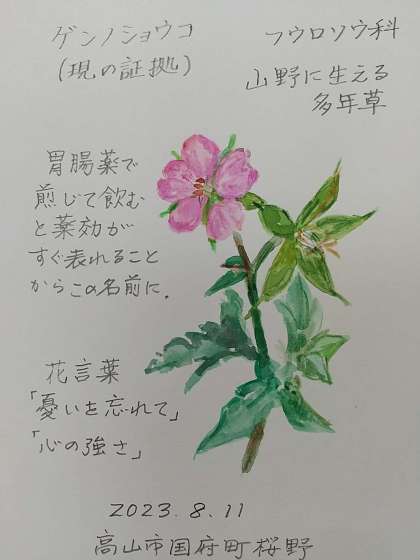 ゲンノショウコ
(現の証拠)
フウロソウ科
山野に生える
多年草
胃腸薬で
煎じて飲む
と薬効が
すぐ表れること
からこの名前に.
花言葉
「憂いを忘れて」
「心の強さ」
2023.8.11
高山市国府町桜野